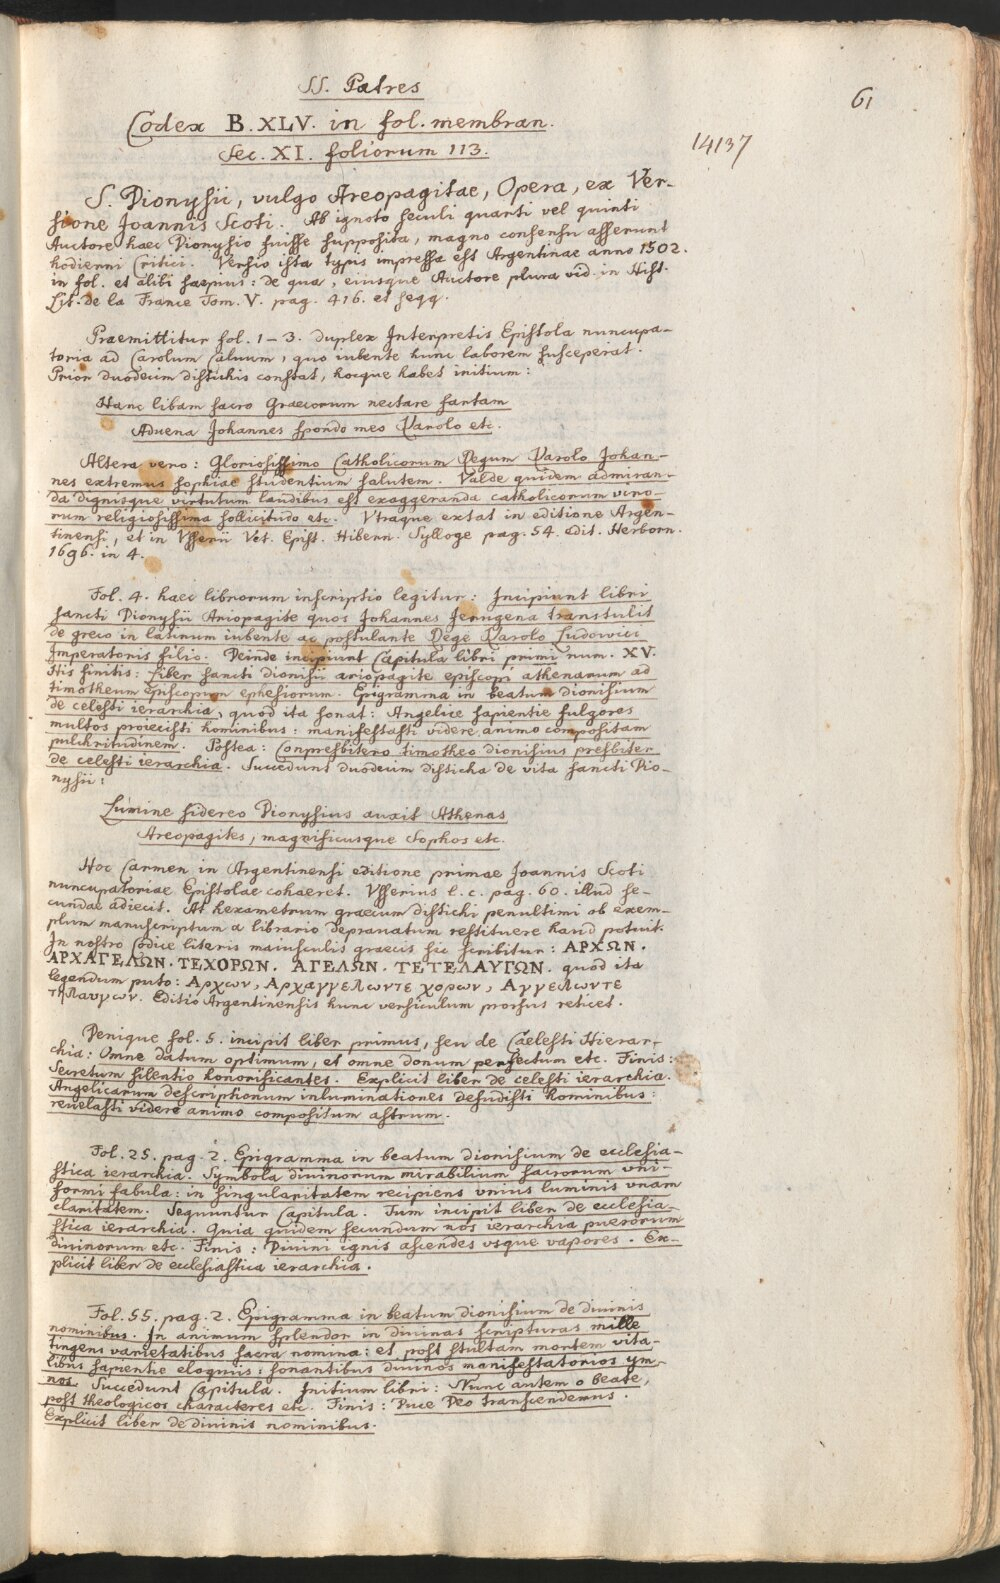 SS. Patres
61
Codex B. XLV. in fol. membran.
14137
Sec. XI. foliorum 113.
S. Dionysii, vulgo Areopagitae, Opera, ex Ver-
sione Joannis Scoti. Ab ignoto seculi quarti vel quinti
Auctore haec Dionysio fuisse supposita, magno consensu asserunt
hodierni Critici. Versio ista typis impressa est Argentinae anno 1502.
in fol. et alibi saepius: de qua, eiusque Auctore plura vid. in Hist.
Lit. de la France Tom. V. pag. 416. et seqq.
Praemittitur fol. 1-3. duplex Interpretis Epistola nuncupa-
toria ad Carolum Calvum, quo iubente hunc laborem susceperat.
Prior duodecim distichis constat, hocque habet initium:
Hanc libam sacro Graecorum nectare fartam
Advena Johannes spondo meo Karolo etc.
Altera vero: Gloriosissimo Catholicorum Regum Karolo Johan-
nes extremus sophiae studentium salutem. Valde quidem admiran-
da dignisque virtutum laudibus est exaggeranda catholicorum viro-
rum religiosissima sollicitudo etc. Vtraque extat in editione Argen-
tinensi, et in Vsserii Vet. Epist. Hibern. Sylloge pag. 54. edit. Herborn.
1696. in 4.
Fol. 4. haec librorum inscriptio legitur: Incipiunt libri
sancti Dionysii Ariopagite quos Johannes Ierugena transtulit
de greco in latinum iubente ac postulante Rege Karolo Ludowici
Imperatoris filio. Deinde incipiunt Capitula libri primi num. XV.
His finitis: Liber sancti dionisii ariopagite episcopi athenarum ad
timotheum episcopum ephesiorum. Epigramma in beatum dionisium
de celesti ierarchia, quod ita sonat: Angelice sapientie fulgores
multos proiecisti hominibus: manifestasti videre animo compositam
pulchritudinem. Postea: Conpresbitero timotheo dionisius presbiter
de celesti ierarchia. Succedunt duodecim disticha de vita sancti Dio-
nysii:
Lumine sidereo Dionysius auxit Athenas
Areopagites, magnificusque Sophos etc.
Hoc Carmen in Argentinensi editione primae Joannis Scoti
nuncupatoriae Epistolae cohaeret. Vsserius l. c. pag. 60. illud se-
cundae adiecit. At hexametrum graecum distichi penultimi ob exem-
plum manuscriptum a librario depravatum restituere haud potuit.
In nostro Codice literis maiusculis graecis sic scribitur: ΑΡΧΩΝ.
ΑΡΧΑΓΕΛΩΝ. ΤΕΧΟΡΩΝ. ΑΓΕΛΩΝ. ΤΕΤΕΛΑΥΓΩΝ. quod ita
legendum puto: Αρχων, Αρχαγγελωντε χορων, Αγγελωντε
τηλαυγων. Editio Argentinensis hunc versiculum prorsus reticet.
Denique fol. 5. incipit liber primus, seu de Caelesti Hierar-
chia: Omne datum optimum, et omne donum perfectum etc. Finis:
Secretum silentio honorificantes. Explicit liber de celesti ierarchia.
Angelicarum descriptionum inluminationes desudisti hominibus:
reuelasti videre animo compositum astrum.
Fol. 25. pag. 2. Epigramma in beatum dionisium de ecclesia-
stica ierarchia. Symbola divinorum mirabilium sacrorum vni-
formi fabula: in singularitatem recipiens vnius luminis vnam
claritatem. Sequuntur Capitula. Tum incipit liber de ecclesia-
stica ierarchia. Quia quidem secundum nos ierarchia puerorum
divinorum etc. Finis: Divini ignis ascendes vsque vapores. Ex-
plicit liber de ecclesiastica ierarchia.
Fol. 55. pag. 2. Epigramma in beatum dionisium de divinis
nominibus. In animum splendor in divinas scripturas mille
tingens varietatibus sacra nomina: et post stultam mortem vita-
libus sapientie eloquiis: sonantibus divinos manifestatorios ym-
nos. Succedunt Capitula. Initium libri: Nunc autem o beate,
post theologicos characteres etc. Finis: Duce Deo transcendemus.
Explicit liber de divinis nominibus.